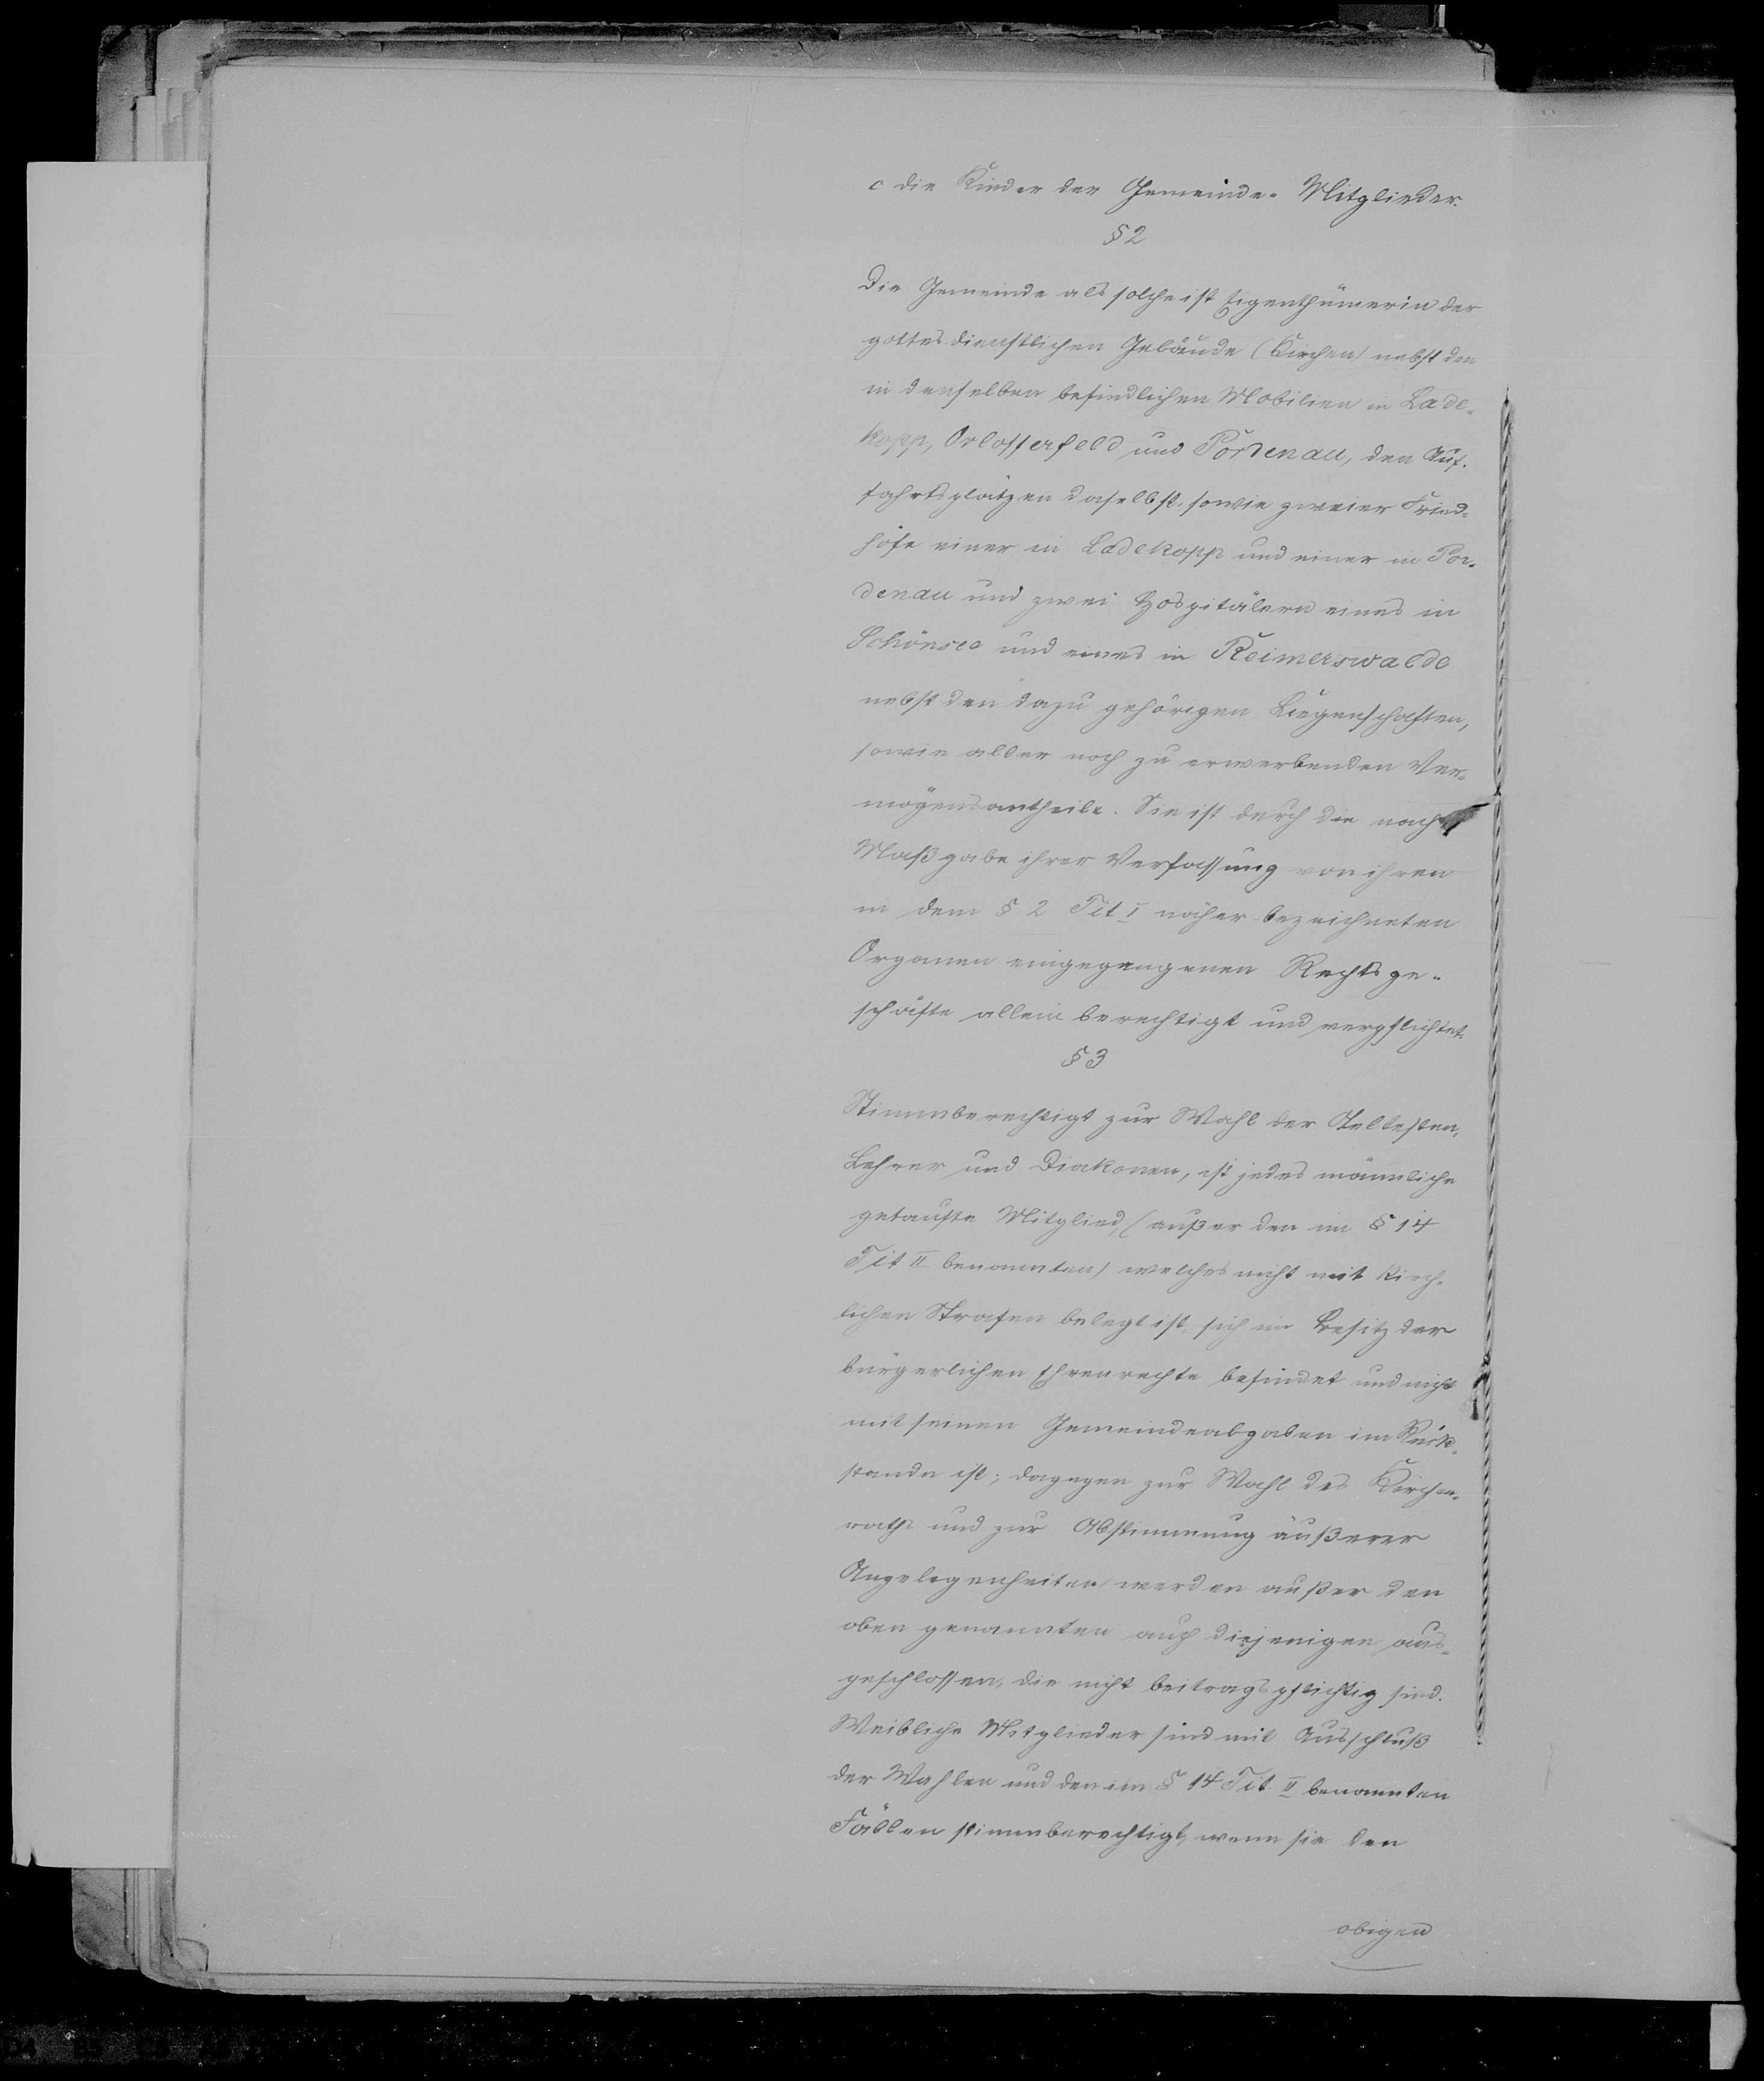 c die Kinder der Gemeinde-Mitglieder.
§ 2
Die Gemeinde als solche ist Eigenthümerin der
gottesdienstlichen Gebäude (Kirchen) nebst den
in denselben befindlichen Mobilien in Lade-
kopp, Orlofferfeld und Pordenau, den Auf-
fahrtsplätzen daselbst, sowie zweier Fried-
höfe einer in Ladekopp und einer in Por-
denau und zwei Hospitälern eines in
Schönsee und eines in Reimerswalde
nebst den dazu gehörigen Liegenschaften,
sowie aller noch zu erwerbenden Ver-
mögensantheile. Sie ist durch die nach
Maßgabe ihrer Verfassung von ihren
in dem § 2 Tit I näher bezeichneten
Organen eingegangenen Rechtsge-
schäfte allein berechtigt und verpflichtet.
§ 3
Stimmberechtigt zur Wahl der Aeltesten,
Lehrer und Diakonen, ist jedes männliche
getaufte Mitglied, (außer den im § 14
Tit II benannten) welches nicht mit kirch-
lichen Strafen belegt ist, sich im Besitz der
bürgerlichen Ehrenrechte befindet und nicht
mit seinen Gemeindeabgaben im Rück-
stande ist; dagegen zur Wahl des Kirchen-
raths und zur Abstimmung äußerer
Angelegenheiten werden außer den
oben genannten auch diejenigen aus-
geschlossen, die nicht beitragspflichtig sind.
Weibliche Mitglieder sind mit Ausschluß
der Wahlen und den im § 14 Tit. II benannten
Fällen stimmberechtigt, wenn sie den
obigen